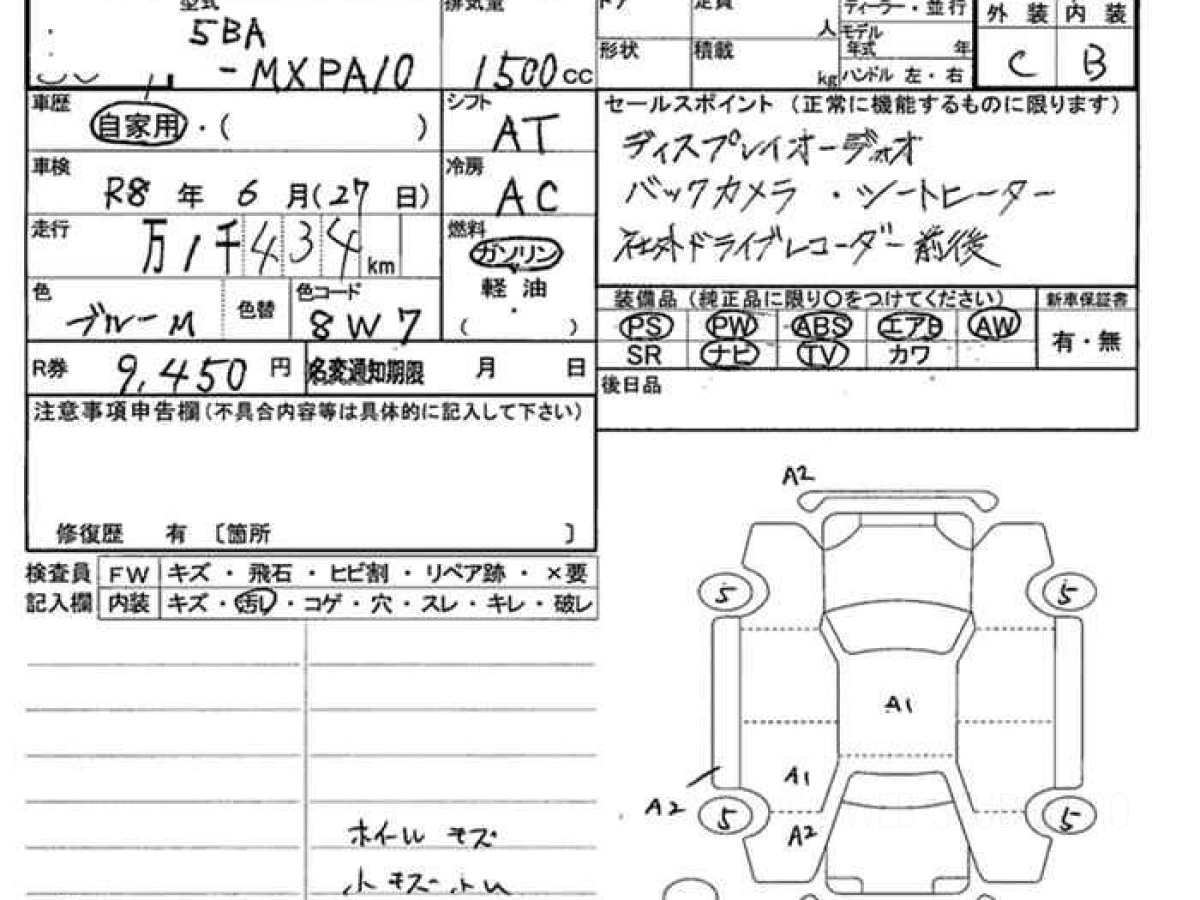 型式
5BA
-MXPA10
排気量
1500cc
定員
人
形状
積載
kg
ディーラー・並行
モデル
年式 年
ハンドル 左・右
外装 内装
C B
車歴
自家用・( )
シフト
AT
車検
R8年6月(27日)
冷房
AC
走行
万1千434km
燃料
ガソリン
軽油
( )
色
ブルーM
色替
色コード
8W7
R券 9,450円
名変通知期限 月 日
注意事項申告欄(不具合内容等は具体的に記入して下さい)
修復歴 有〔箇所 〕
セールスポイント(正常に機能するものに限ります)
ディスプレイオーディオ
バックカメラ・シートヒーター
社外ドライブレコーダー前後
装備品(純正品に限り〇をつけてください)
新車保証書
PS PW ABS エアB AW
有・無
SR ナビ TV カワ
後日品
検査員 FW キズ・飛石・ヒビ割・リペア跡・×要
記入欄 内装 キズ・汚し・コゲ・穴・スレ・キレ・破レ
ホイール キズ
小キズ
A2
5 5
A1
A1
A2
5 5
A2